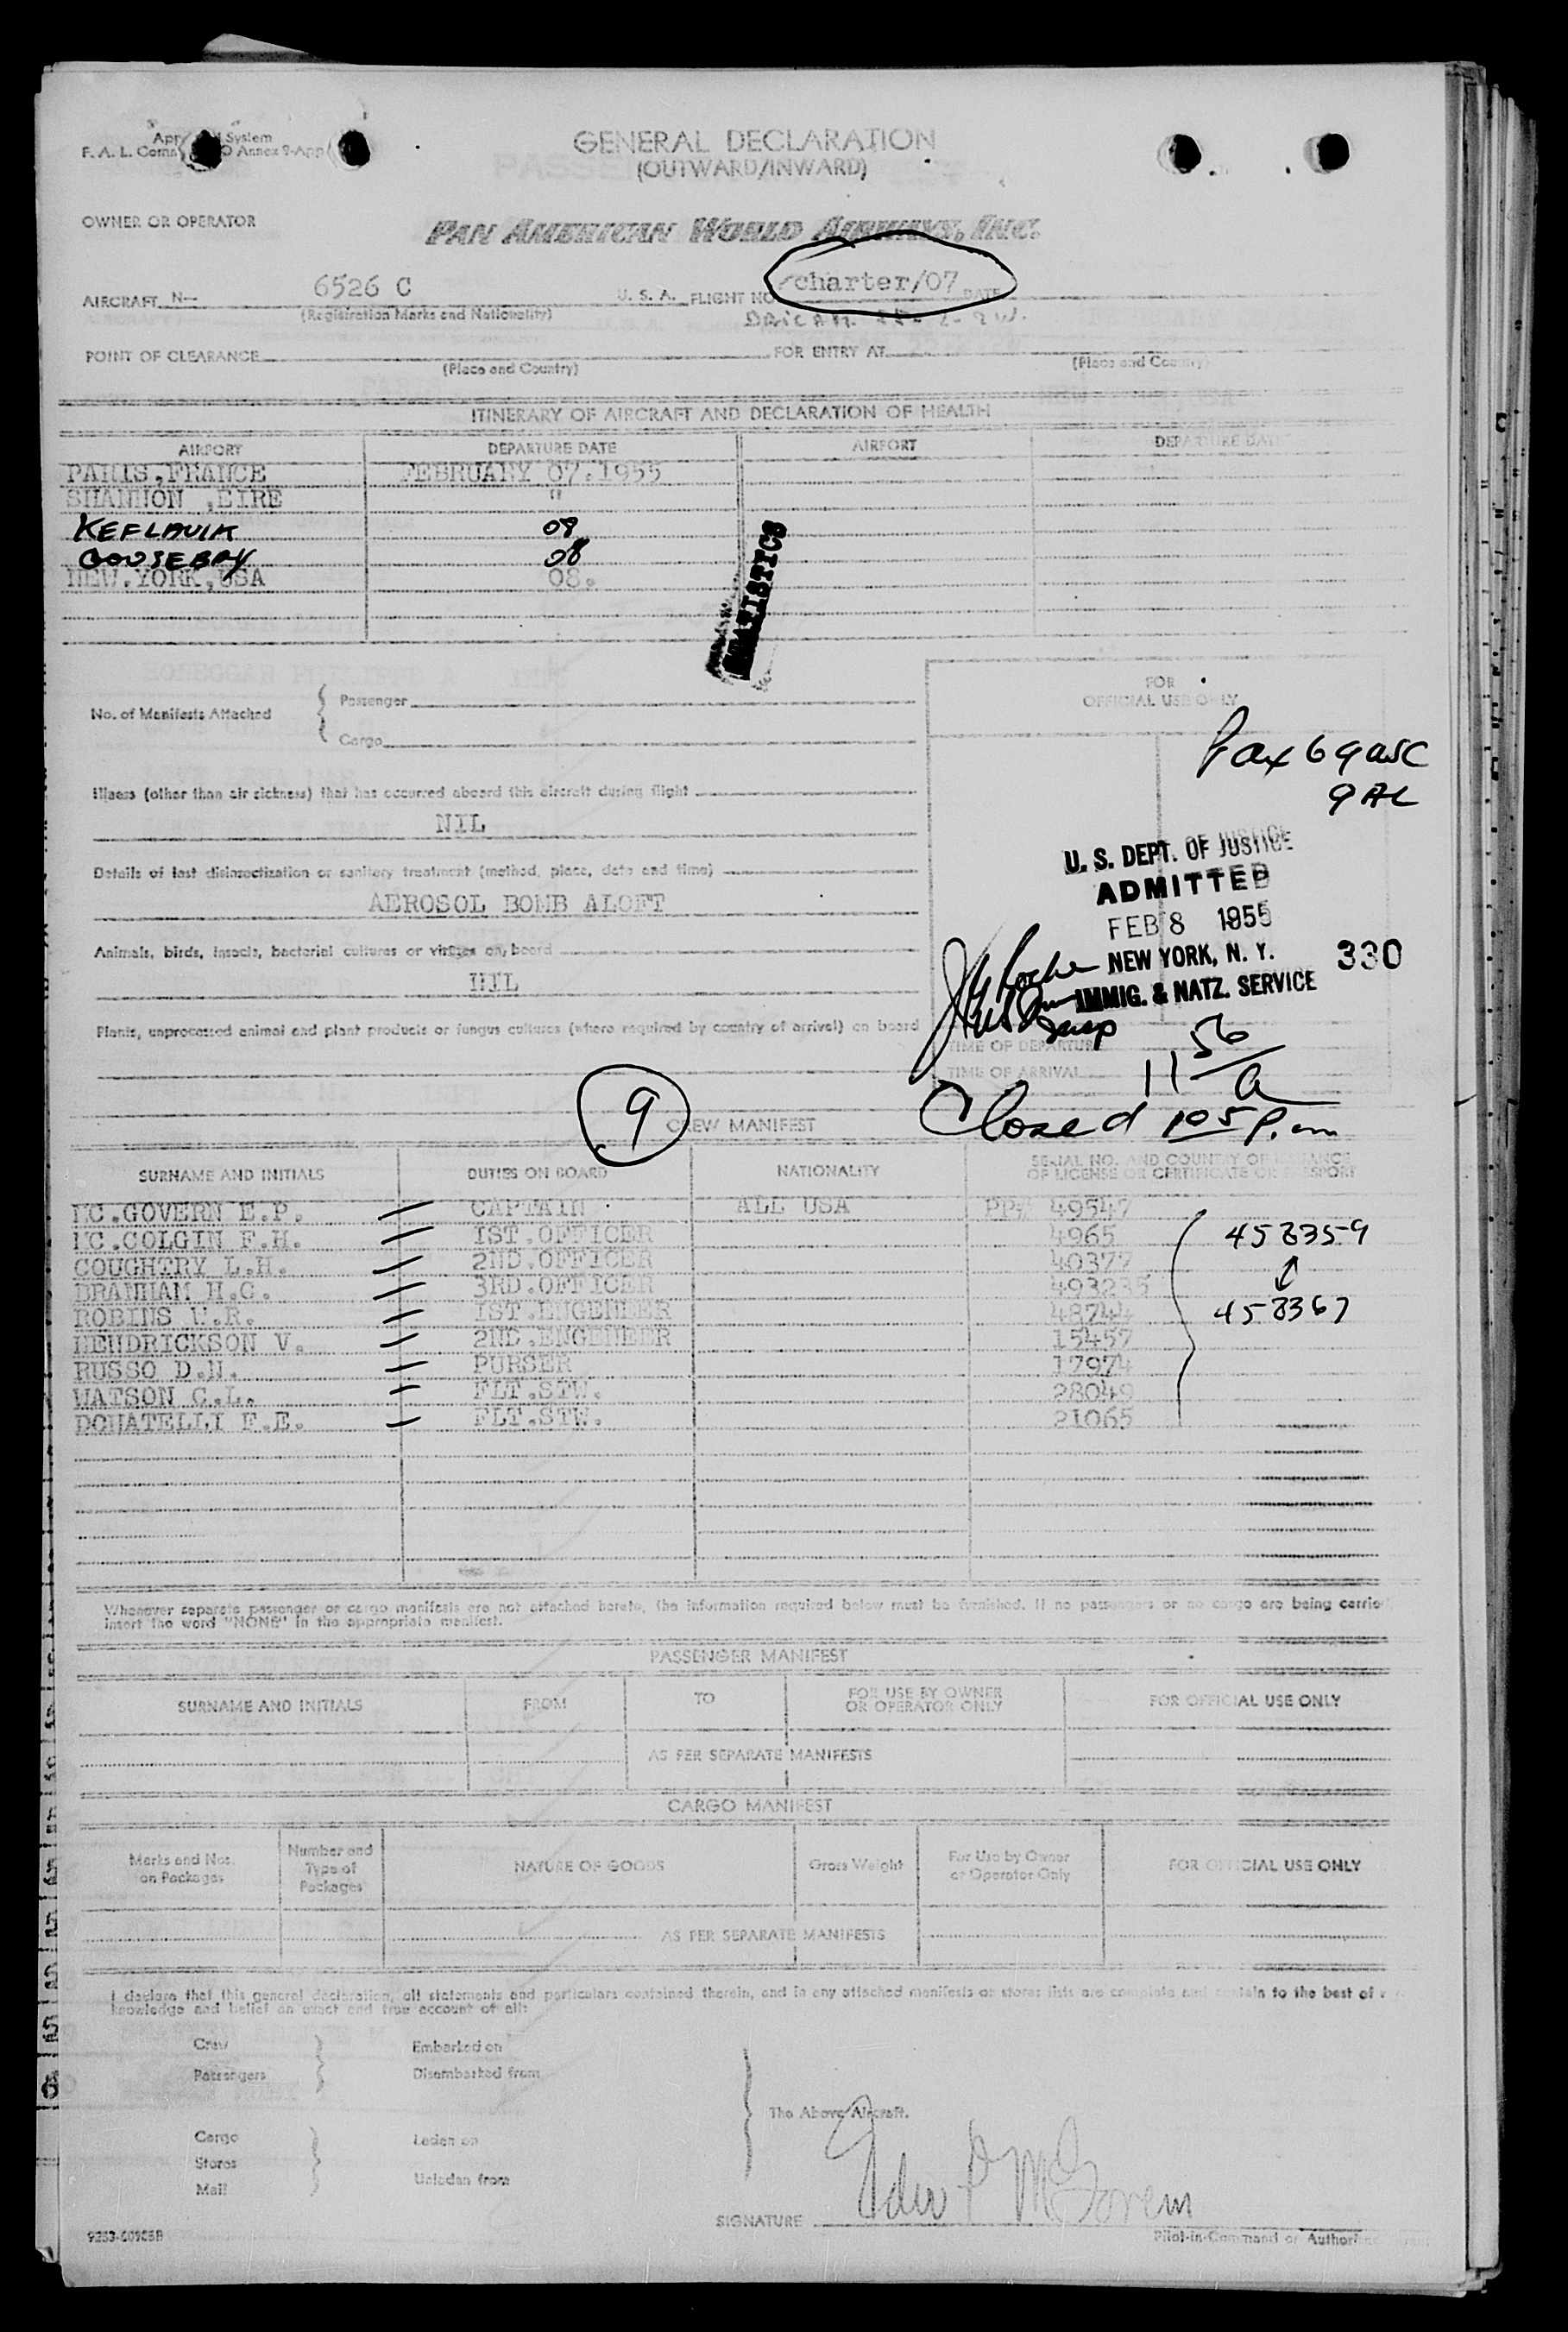 GENERAL DECLARATION
(OUTWARD/INWARD)
System
F. A. L. Annex 9-App
OWNER OR OPERATOR PAN AMERICAN WORLD AIRWAYS, INC.
AIRCRAFT N— 6526 C U. S. A. FLIGHT NO charter/07 DATE
(Registration Marks and Nationality)
POINT OF CLEARANCE FOR ENTRY AT
(Place and Country) (Place and Country)
ITINERARY OF AIRCRAFT AND DECLARATION OF HEALTH
AIRPORT DEPARTURE DATE AIRPORT DEPARTURE DATE
PARIS,FRANCE FEBRUARY 07.1955
SHANNON ,EIRE "
KEFLAVIK 08
GOOSEBAY 08
NEW.YORK,USA 08.
STATISTICS
No. of Manifests Attached { Passenger
Cargo
FOR
OFFICIAL USE ONLY
Pax 69 USC
9 AL
Illness (other than air sickness) that has occurred aboard this aircraft during flight
NIL
Details of last disinsectization or sanitary treatment (method, place, date and time)
AEROSOL BOMB ALOFT
Animals, birds, insects, bacterial cultures or viruses on board
NIL
Plants, unprocessed animal and plant products or fungus cultures (where required by country of arrival) on board
U. S. DEPT. OF JUSTICE
ADMITTED
FEB 8 1955
NEW YORK, N. Y. 330
IMMIG. & NATZ. SERVICE
Insp
TIME OF DEPARTURE
TIME OF ARRIVAL 11 56/a
Closed 105 P.m
9
CREW MANIFEST
SURNAME AND INITIALS DUTIES ON BOARD NATIONALITY SERIAL NO. AND COUNTRY OF ISSUANCE
OF LICENSE OR CERTIFICATE OR PASSPORT
MC.GOVERN E.P. CAPTAIN ALL USA PP# 49547
MC.COLGIN F.H. IST.OFFICER 4965 458359
COUGHTRY L.H. 2ND.OFFICER 40377
BRANHAM H.C. 3RD.OFFICER 493235
ROBINS W.R. IST.ENGENEER 48744 458367
HENDRICKSON V. 2ND.ENGENEER 15457
RUSSO D.N. PURSER 17974
WATSON C.L. FLT.STW. 28049
DONATELLI F.E. FLT.STW. 21065
Whenever separate passenger or cargo manifests are not attached hereto, the information required below must be furnished. If no passengers or no cargo are being carried
insert the word "NONE" in the appropriate manifest.
PASSENGER MANIFEST
SURNAME AND INITIALS FROM TO FOR USE BY OWNER
OR OPERATOR ONLY FOR OFFICIAL USE ONLY
AS PER SEPARATE MANIFESTS
CARGO MANIFEST
Marks and Nos.
on Packages Number and
Type of
Packages NATURE OF GOODS Gross Weight For Use by Owner
or Operator Only FOR OFFICIAL USE ONLY
AS PER SEPARATE MANIFESTS
I declare that this general declaration, all statements and particulars contained therein, and in any attached manifests or stores lists are complete and to the best of
knowledge and belief an exact and true account of all:
Crew Embarked on
Passengers Disembarked from
The Above Aircraft.
Cargo Laden on
Stores
Mail Unladen from
SIGNATURE Edw P McGovern
Pilot-in-Command or